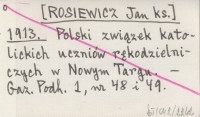 [ROSIEWICZ Jan ks.]
1913. Polski związek kato-
lickich uczniów rękodzielni-
czych w Nowym Targu. –
Gaz. Podh. 1, nr 48 i 49.